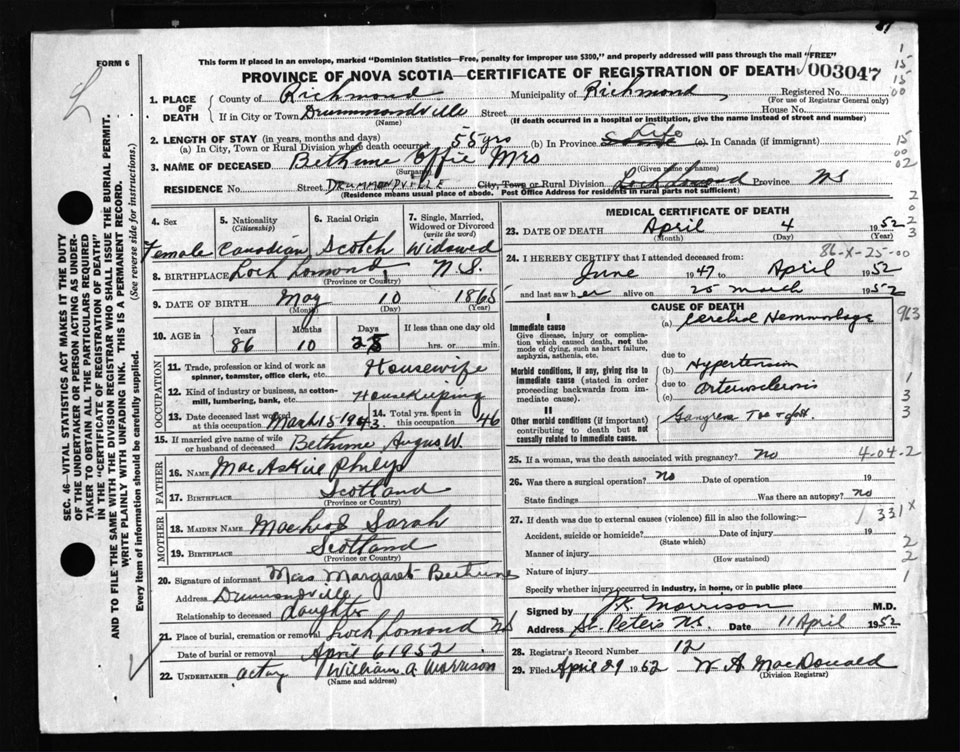 FORM 6
This form if placed in an envelope, marked "Dominion Statistics—Free, penalty for improper use $300," and properly addressed will pass through the mail "FREE"
PROVINCE OF NOVA SCOTIA—CERTIFICATE OF REGISTRATION OF DEATH 003047
1. PLACE OF DEATH
County of Richmond Municipality of Richmond Registered No.
(For use of Registrar General only)
If in City or Town Drummondville Street House No.
(Name) (If death occurred in a hospital or institution, give the name instead of street and number)
2. LENGTH OF STAY (in years, months and days)
(a) In City, Town or Rural Division where death occurred 55 yrs (b) In Province Life (c) In Canada (if immigrant)
3. NAME OF DECEASED Bethune Effie Mrs
(Surname) (Given name or names)
RESIDENCE No. Street DRUMMONDVILLE City, Town or Rural Division Province NS
(Residence means usual place of abode. Post Office Address for residents in rural parts not sufficient)
4. Sex
Female
5. Nationality
(Citizenship)
Canadian
6. Racial Origin
Scotch
7. Single, Married, Widowed or Divorced
(write the word)
Widowed
8. BIRTHPLACE Loch Lomond, N.S.
(Province or Country)
9. DATE OF BIRTH May 10 1865
(Month) (Day) (Year)
10. AGE in Years Months Days If less than one day old
86 10 25 hrs. or min.
OCCUPATION
11. Trade, profession or kind of work as spinner, teamster, office clerk, etc. Housewife
12. Kind of industry or business, as cotton-mill, lumbering, bank, etc. Housekeeping
13. Date deceased last worked at this occupation March 15-1943.
14. Total yrs. spent in this occupation 46
15. If married give name of wife or husband of deceased Bethune Angus W.
FATHER
16. NAME MacAskill Philip
17. BIRTHPLACE Scotland
(Province or Country)
MOTHER
18. MAIDEN NAME MacLeod Sarah
19. BIRTHPLACE Scotland
(Province or Country)
20. Signature of informant Miss Margaret Bethune
Address Drummondville
Relationship to deceased daughter
21. Place of burial, cremation or removal Loch Lomond NS
Date of burial or removal April 6 1952
22. UNDERTAKER acting William A Morrison
(Name and address)
MEDICAL CERTIFICATE OF DEATH
23. DATE OF DEATH April 4 1952
(Month) (Day) (Year)
86-X-25-00
24. I HEREBY CERTIFY that I attended deceased from:
June 1947 to April 1952
and last saw her alive on 25 March 1952
CAUSE OF DEATH
I
Immediate cause
Give disease, injury or complication which caused death, not the mode of dying, such as heart failure, asphyxia, asthenia, etc.
(a) Cerebral Hemmorhage
due to
Morbid conditions, if any, giving rise to immediate cause (stated in order proceeding backwards from immediate cause).
(b) Hypertension
due to Arteriosclerosis
(c)
II
Other morbid conditions (if important) contributing to death but not causally related to immediate cause.
Gangrene Toe & foot.
25. If a woman, was the death associated with pregnancy? No
4-04-2
26. Was there a surgical operation? No Date of operation 19
State findings Was there an autopsy? no
27. If death was due to external causes (violence) fill in also the following:—
331X
Accident, suicide or homicide? Date of injury 19
(State which)
Manner of injury
(How sustained)
Nature of injury
Specify whether injury occurred in industry, in home, or in public place
Signed by J.K. Morrison M.D.
Address St. Peters NS. Date 11 April 1952
28. Registrar's Record Number 12
29. Filed April 29 1952 W A MacDonald
(Division Registrar)
SEC. 46—VITAL STATISTICS ACT MAKES IT THE DUTY
OF THE UNDERTAKER OR PERSON ACTING AS UNDERTAKER TO OBTAIN ALL THE PARTICULARS REQUIRED
IN THE "CERTIFICATE OF REGISTRATION OF DEATH"
AND TO FILE THE SAME WITH THE DIVISION REGISTRAR WHO SHALL ISSUE THE BURIAL PERMIT.
WRITE PLAINLY WITH UNFADING INK. THIS IS A PERMANENT RECORD.
(See reverse side for instructions.)
Every item of information should be carefully supplied.